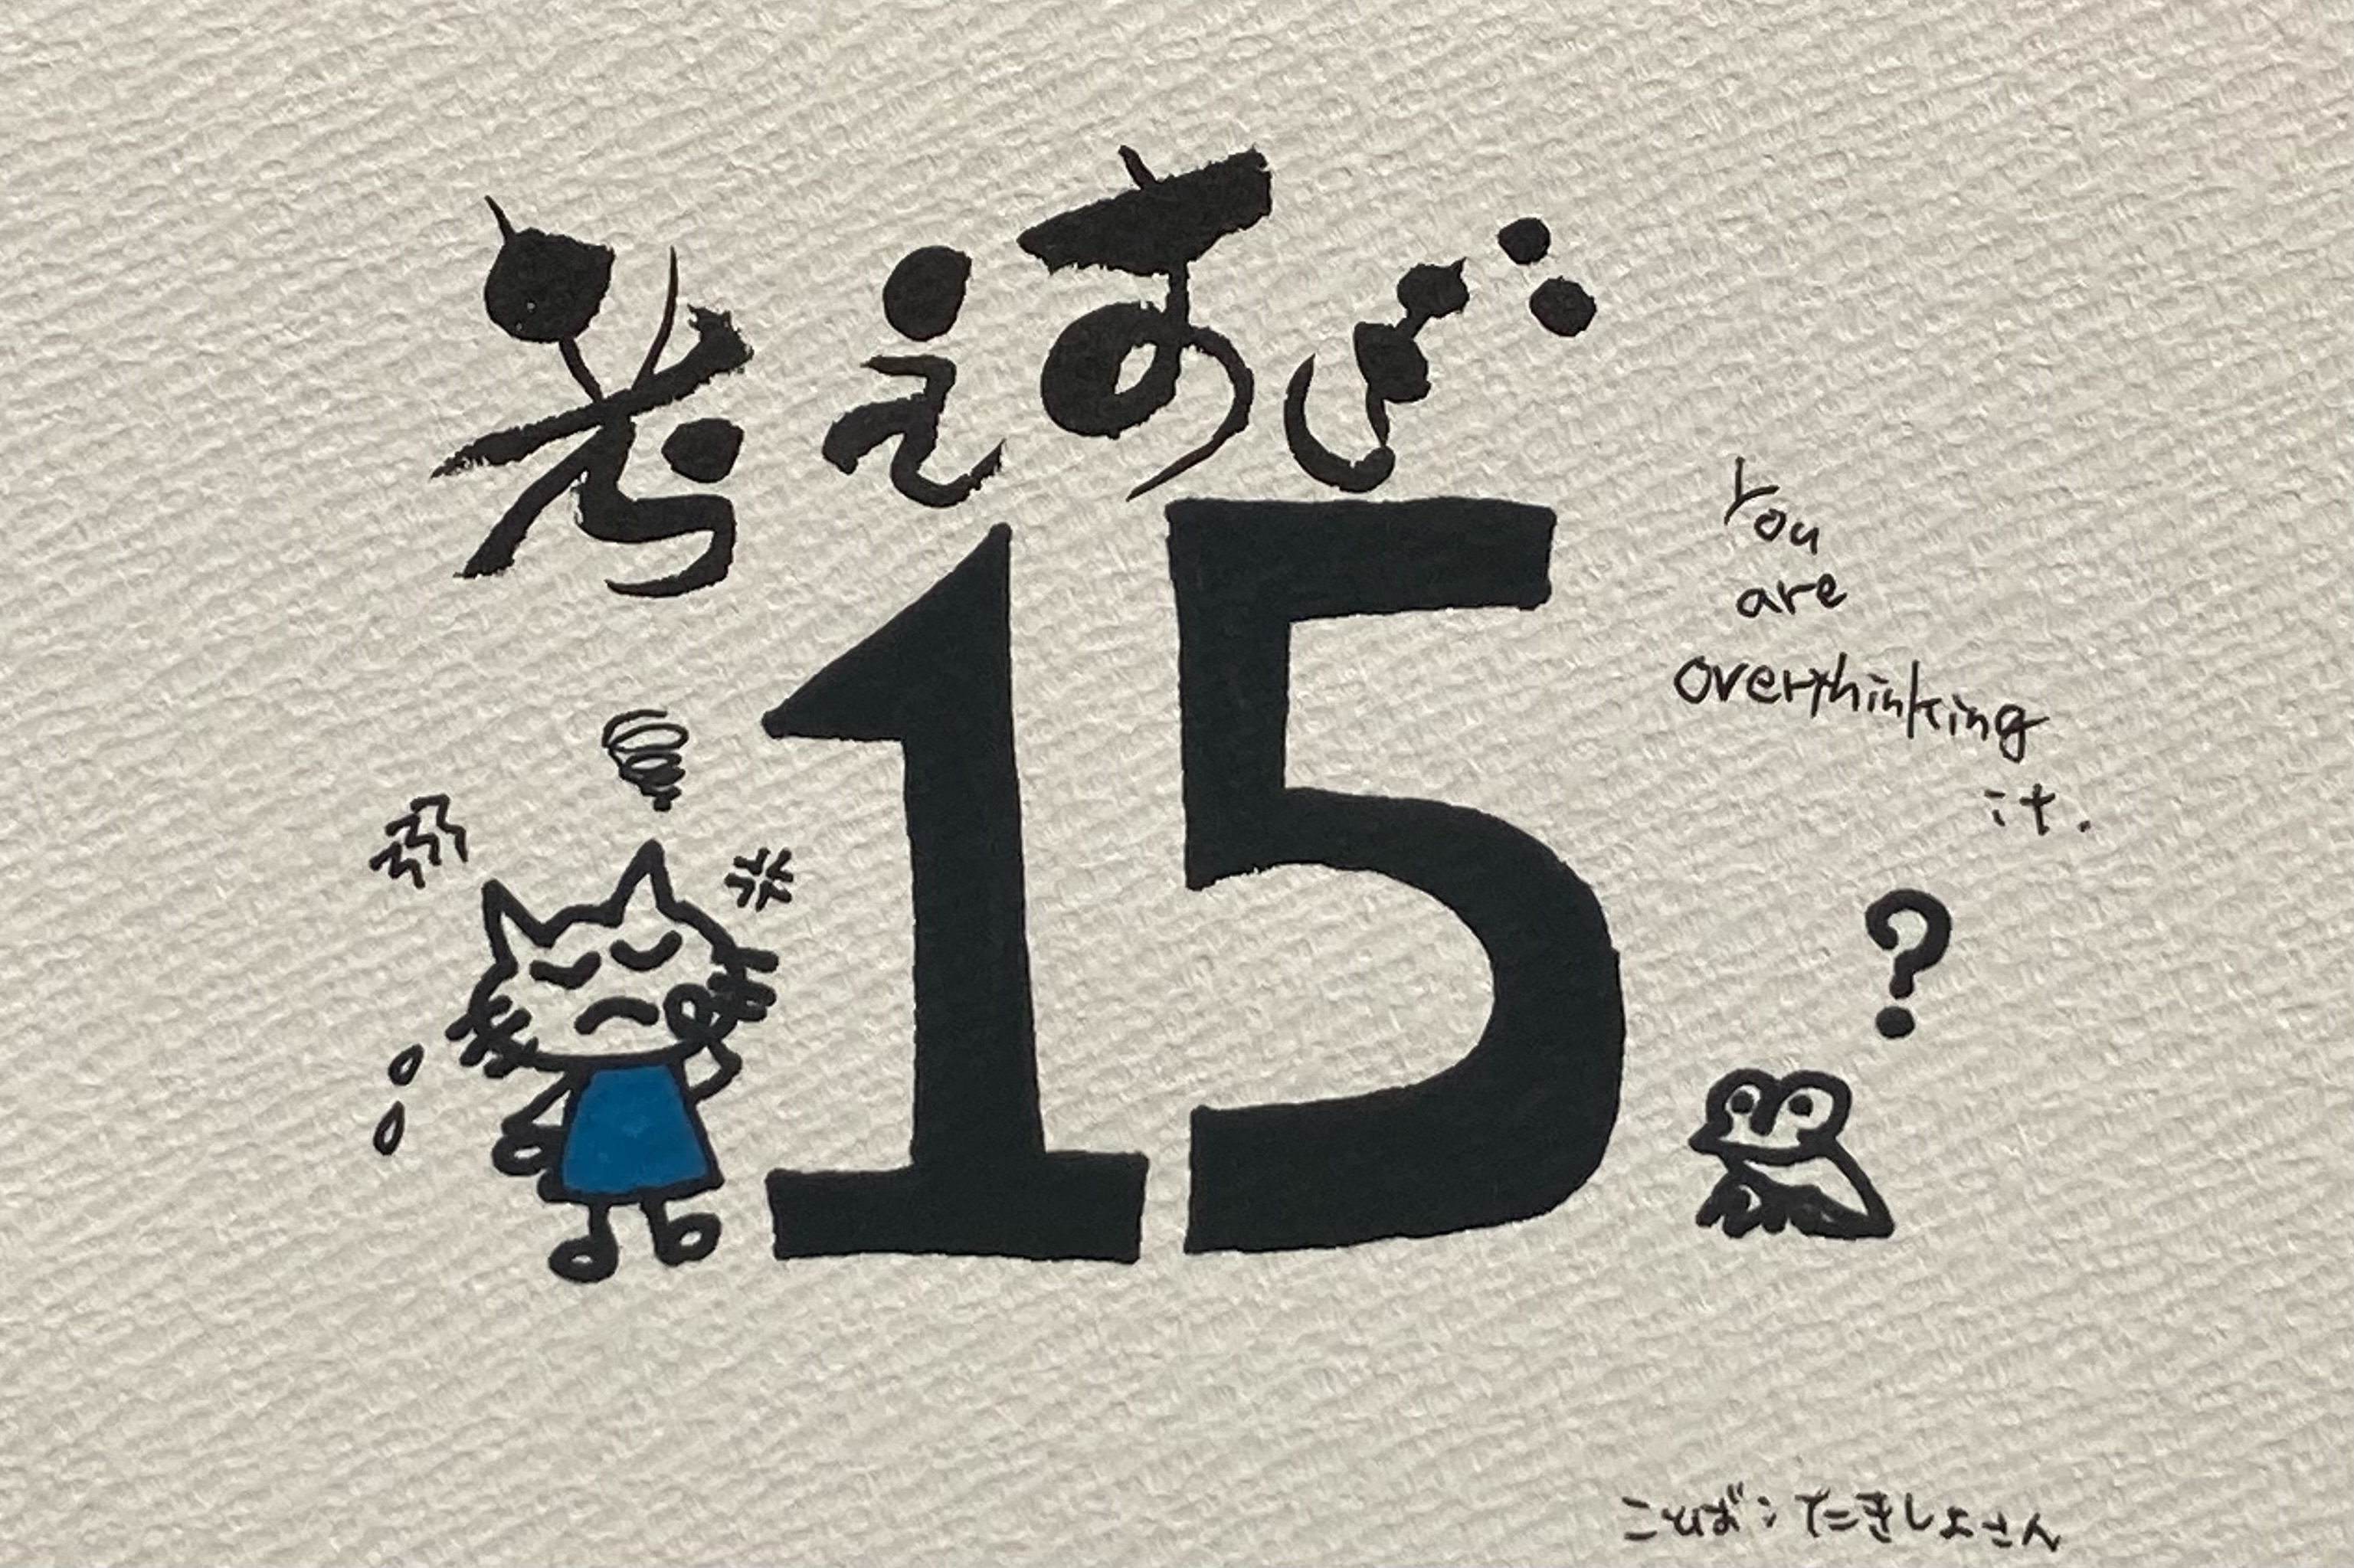 考えすぎ
15
You
are
overthinking
it.
?
ことば：たきしょさん